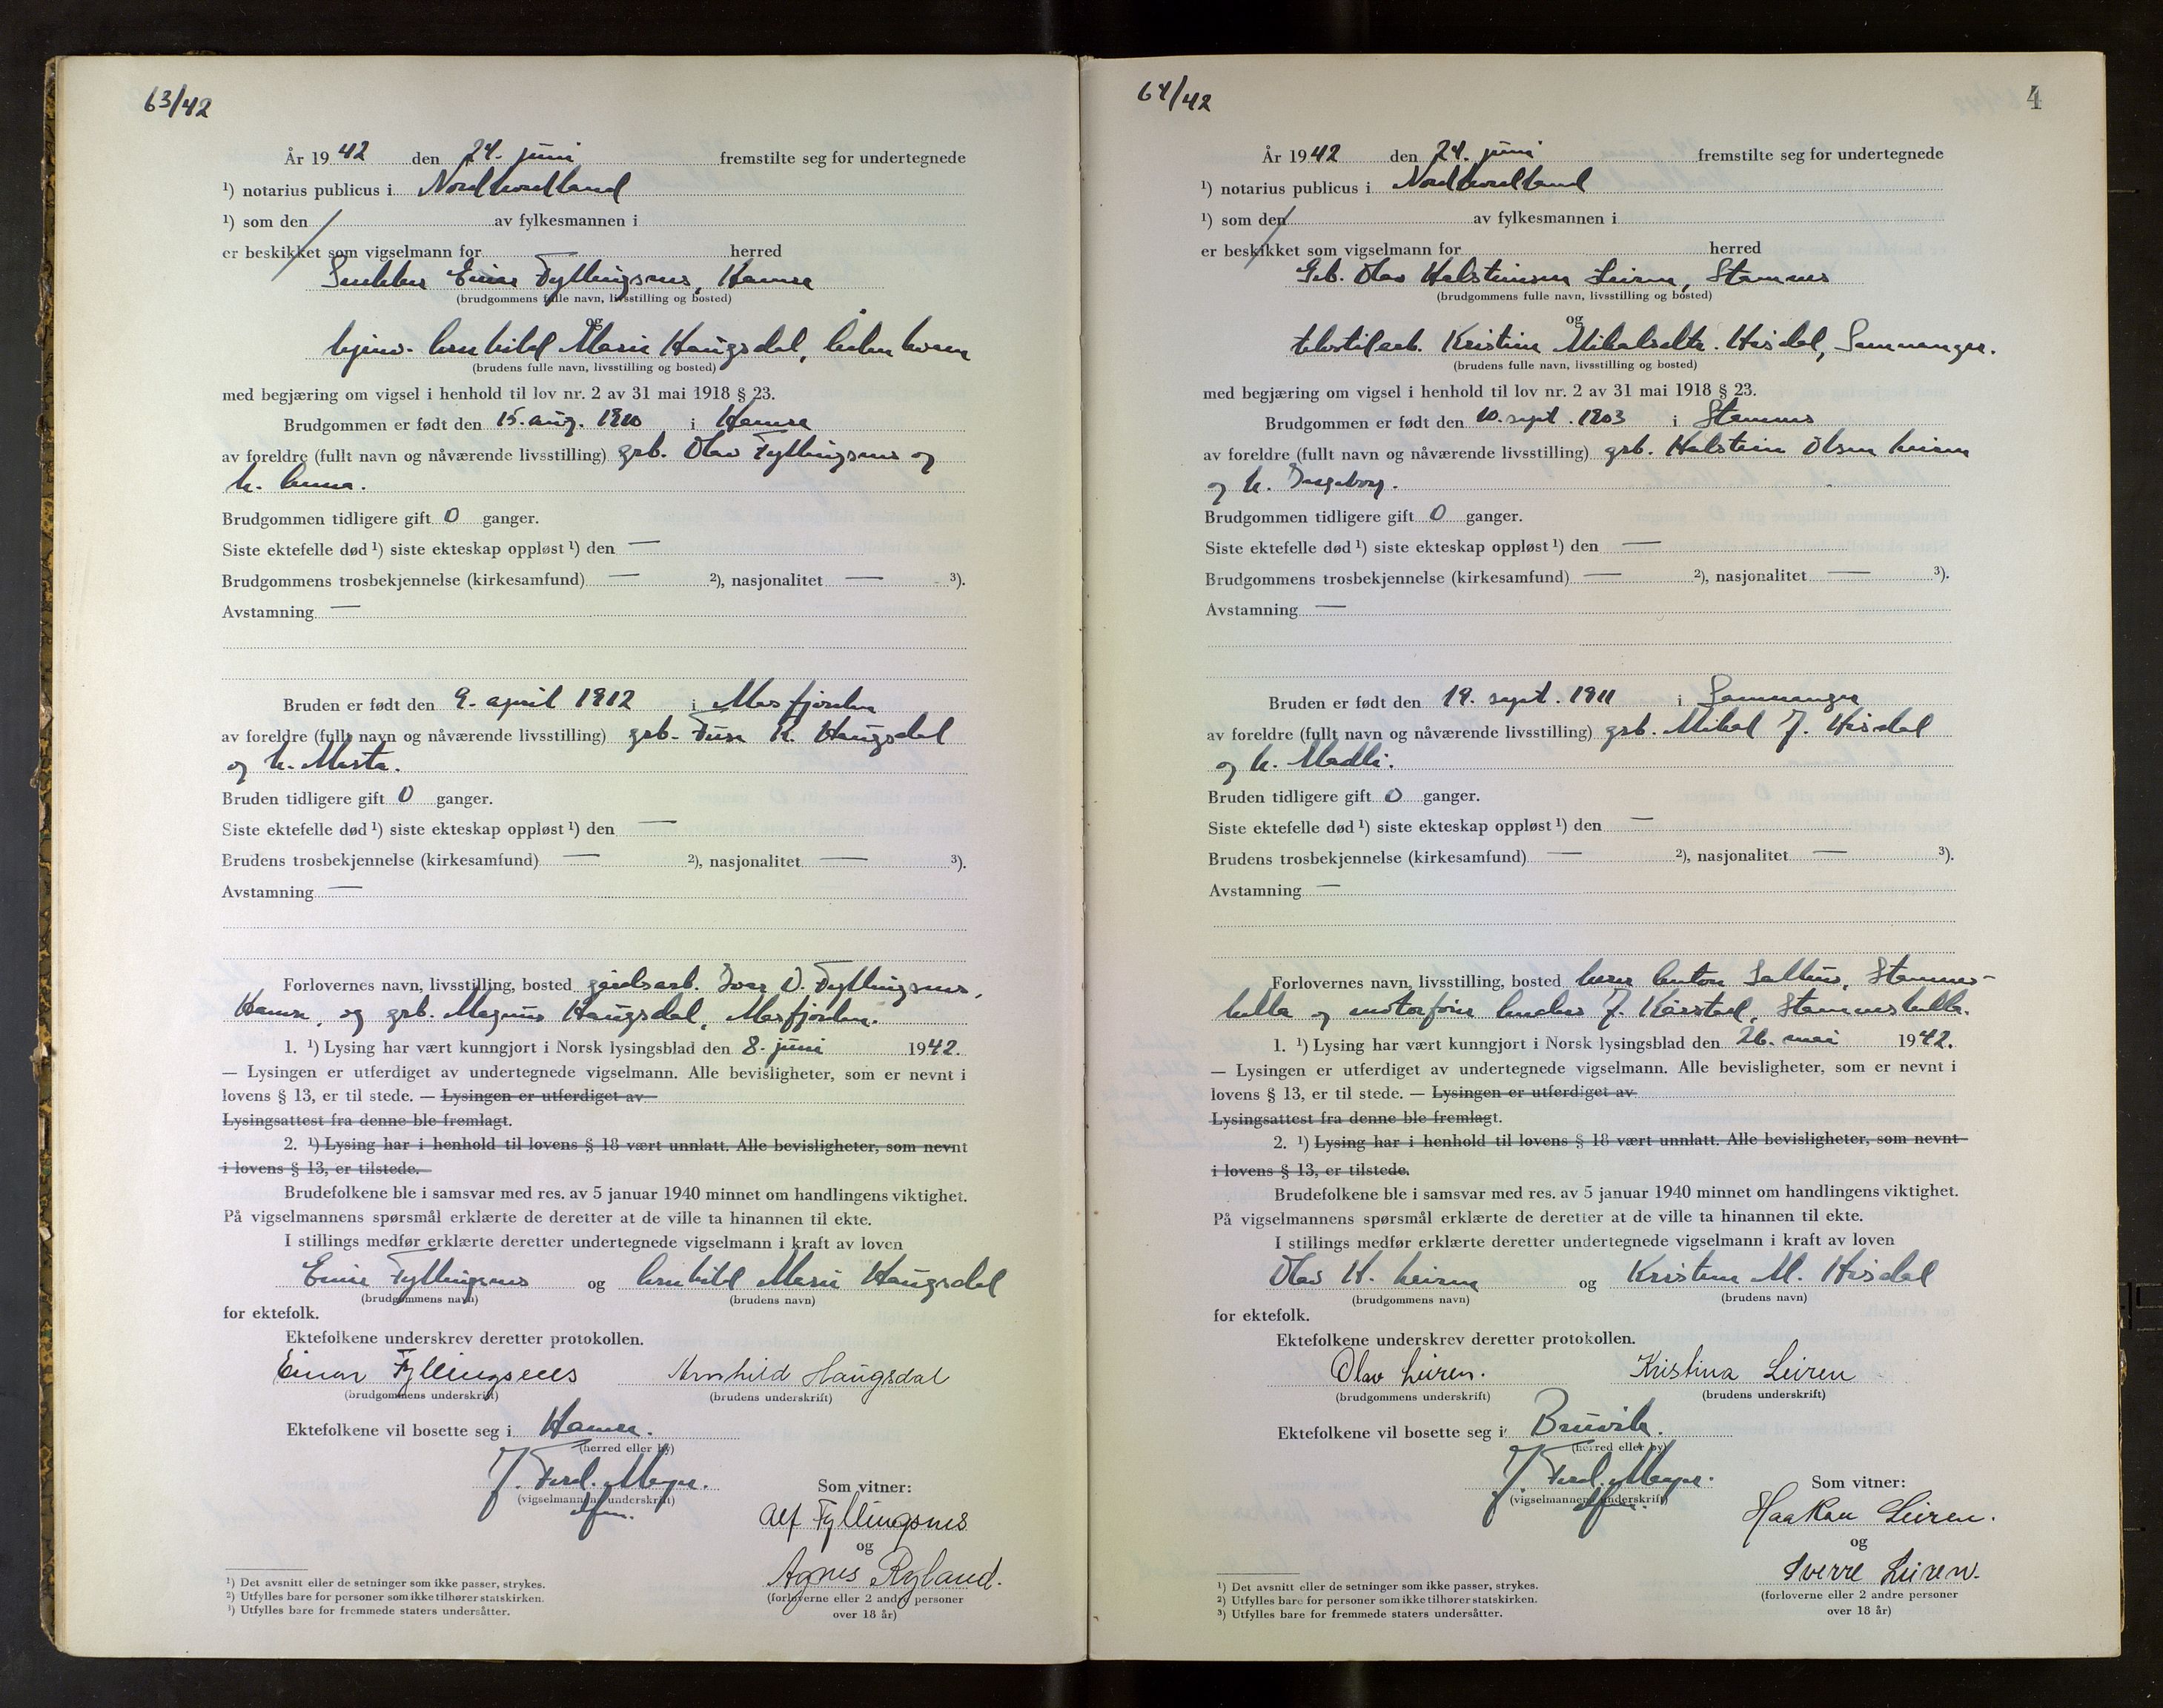 63/42
År 1942 den 24. juni fremstilte seg for undertegnede
¹) notarius publicus i Nordhordland
¹) som den av fylkesmannen i
er beskikket som vigselmann for herred
Snekker Einar Fyllingsnes, Hamre
(brudgommens fulle navn, livsstilling og bosted)
og
hjemv. Arnhild Marie Haugsdal,
(brudens fulle navn, livsstilling og bosted)
med begjæring om vigsel i henhold til lov nr. 2 av 31 mai 1918 § 23.
Brudgommen er født den 15. aug. 1910 i Hamre
av foreldre (fullt navn og nåværende livsstilling) grb. Olav Fyllingsnes og
h. Anna.
Brudgommen tidligere gift 0 ganger.
Siste ektefelle død ¹) siste ekteskap oppløst ¹) den —
Brudgommens trosbekjennelse (kirkesamfund) — ²), nasjonalitet — ³).
Avstamning —
Bruden er født den 9. april 1912 i Masfjorden
av foreldre (fullt navn og nåværende livsstilling) grb. K. Haugsdal
og h. Marta.
Bruden tidligere gift 0 ganger.
Siste ektefelle død ¹) siste ekteskap oppløst ¹) den —
Brudens trosbekjennelse (kirkesamfund) — ²), nasjonalitet — ³).
Avstamning —
Forlovernes navn, livsstilling, bosted gårdsarb. Ivar O. Fyllingsnes,
Hamre, og grb. Magnus Haugsdal, Masfjorden.
1. ¹) Lysing har vært kunngjort i Norsk lysingsblad den 8. juni 1942.
— Lysingen er utferdiget av undertegnede vigselmann. Alle bevisligheter, som er nevnt i
lovens § 13, er til stede. — Lysingen er utferdiget av
Lysingsattest fra denne ble fremlagt.
2. ¹) Lysing har i henhold til lovens § 18 vært unnlatt. Alle bevisligheter, som nevnt
i lovens § 13, er tilstede.
Brudefolkene ble i samsvar med res. av 5 januar 1940 minnet om handlingens viktighet.
På vigselmannens spørsmål erklærte de deretter at de ville ta hinannen til ekte.
I stillings medfør erklærte deretter undertegnede vigselmann i kraft av loven
Einar Fyllingsnes og Arnhild Marie Haugsdal
(brudgommens navn) (brudens navn)
for ektefolk.
Ektefolkene underskrev deretter protokollen.
Einar Fyllingsnes Arnhild Haugsdal
(brudgommens underskrift) (brudens underskrift)
Ektefolkene vil bosette seg i Hamre.
(herred eller by)
J. Ferd. Meyer.
(vigselmannens underskrift)
Som vitner:
Alf Fyllingsnes
og
Agnes Ryland.
(forloverne eller 2 andre personer
over 18 år)
¹) Det avsnitt eller de setninger som ikke passer, strykes.
²) Utfylles bare for personer som ikke tilhører statskirken.
³) Utfylles bare for fremmede staters undersåtter.
64/42
4
År 1942 den 24. juni fremstilte seg for undertegnede
¹) notarius publicus i Nordhordland
¹) som den av fylkesmannen i
er beskikket som vigselmann for herred
Grb. Olav Halsteinsen Leiren, Stamnes
(brudgommens fulle navn, livsstilling og bosted)
og
tekstilarb. Kristine Mikalsdtr. Hisdal, Samnanger.
(brudens fulle navn, livsstilling og bosted)
med begjæring om vigsel i henhold til lov nr. 2 av 31 mai 1918 § 23.
Brudgommen er født den 10. sept. 1903 i Stamnes
av foreldre (fullt navn og nåværende livsstilling) grb. Halstein Olsen Leiren
og h. Ingeborg.
Brudgommen tidligere gift 0 ganger.
Siste ektefelle død ¹) siste ekteskap oppløst ¹) den —
Brudgommens trosbekjennelse (kirkesamfund) — ²), nasjonalitet — ³).
Avstamning —
Bruden er født den 19. sept. 1911 i Samnanger
av foreldre (fullt navn og nåværende livsstilling) grb. Mikal J. Hisdal
og h. Madli.
Bruden tidligere gift 0 ganger.
Siste ektefelle død ¹) siste ekteskap oppløst ¹) den —
Brudens trosbekjennelse (kirkesamfund) — ²), nasjonalitet — ³).
Avstamning —
Forlovernes navn, livsstilling, bosted lærer Anton Sellevis, Stamnes-
hella og motorfører Anders J. Kårstad, Stamneshella.
1. ¹) Lysing har vært kunngjort i Norsk lysingsblad den 26. mai 1942.
— Lysingen er utferdiget av undertegnede vigselmann. Alle bevisligheter, som er nevnt i
lovens § 13, er til stede. — Lysingen er utferdiget av
Lysingsattest fra denne ble fremlagt.
2. ¹) Lysing har i henhold til lovens § 18 vært unnlatt. Alle bevisligheter, som nevnt
i lovens § 13, er tilstede.
Brudefolkene ble i samsvar med res. av 5 januar 1940 minnet om handlingens viktighet.
På vigselmannens spørsmål erklærte de deretter at de ville ta hinannen til ekte.
I stillings medfør erklærte deretter undertegnede vigselmann i kraft av loven
Olav H. Leiren og Kristine M. Hisdal
(brudgommens navn) (brudens navn)
for ektefolk.
Ektefolkene underskrev deretter protokollen.
Olav Leiren. Kristina Leiren
(brudgommens underskrift) (brudens underskrift)
Ektefolkene vil bosette seg i Bruvik.
(herred eller by)
J. Ferd. Meyer.
(vigselmannens underskrift)
Som vitner:
Haakon Leiren.
og
Sverre Leiren.
(forloverne eller 2 andre personer
over 18 år)
¹) Det avsnitt eller de setninger som ikke passer, strykes.
²) Utfylles bare for personer som ikke tilhører statskirken.
³) Utfylles bare for fremmede staters undersåtter.